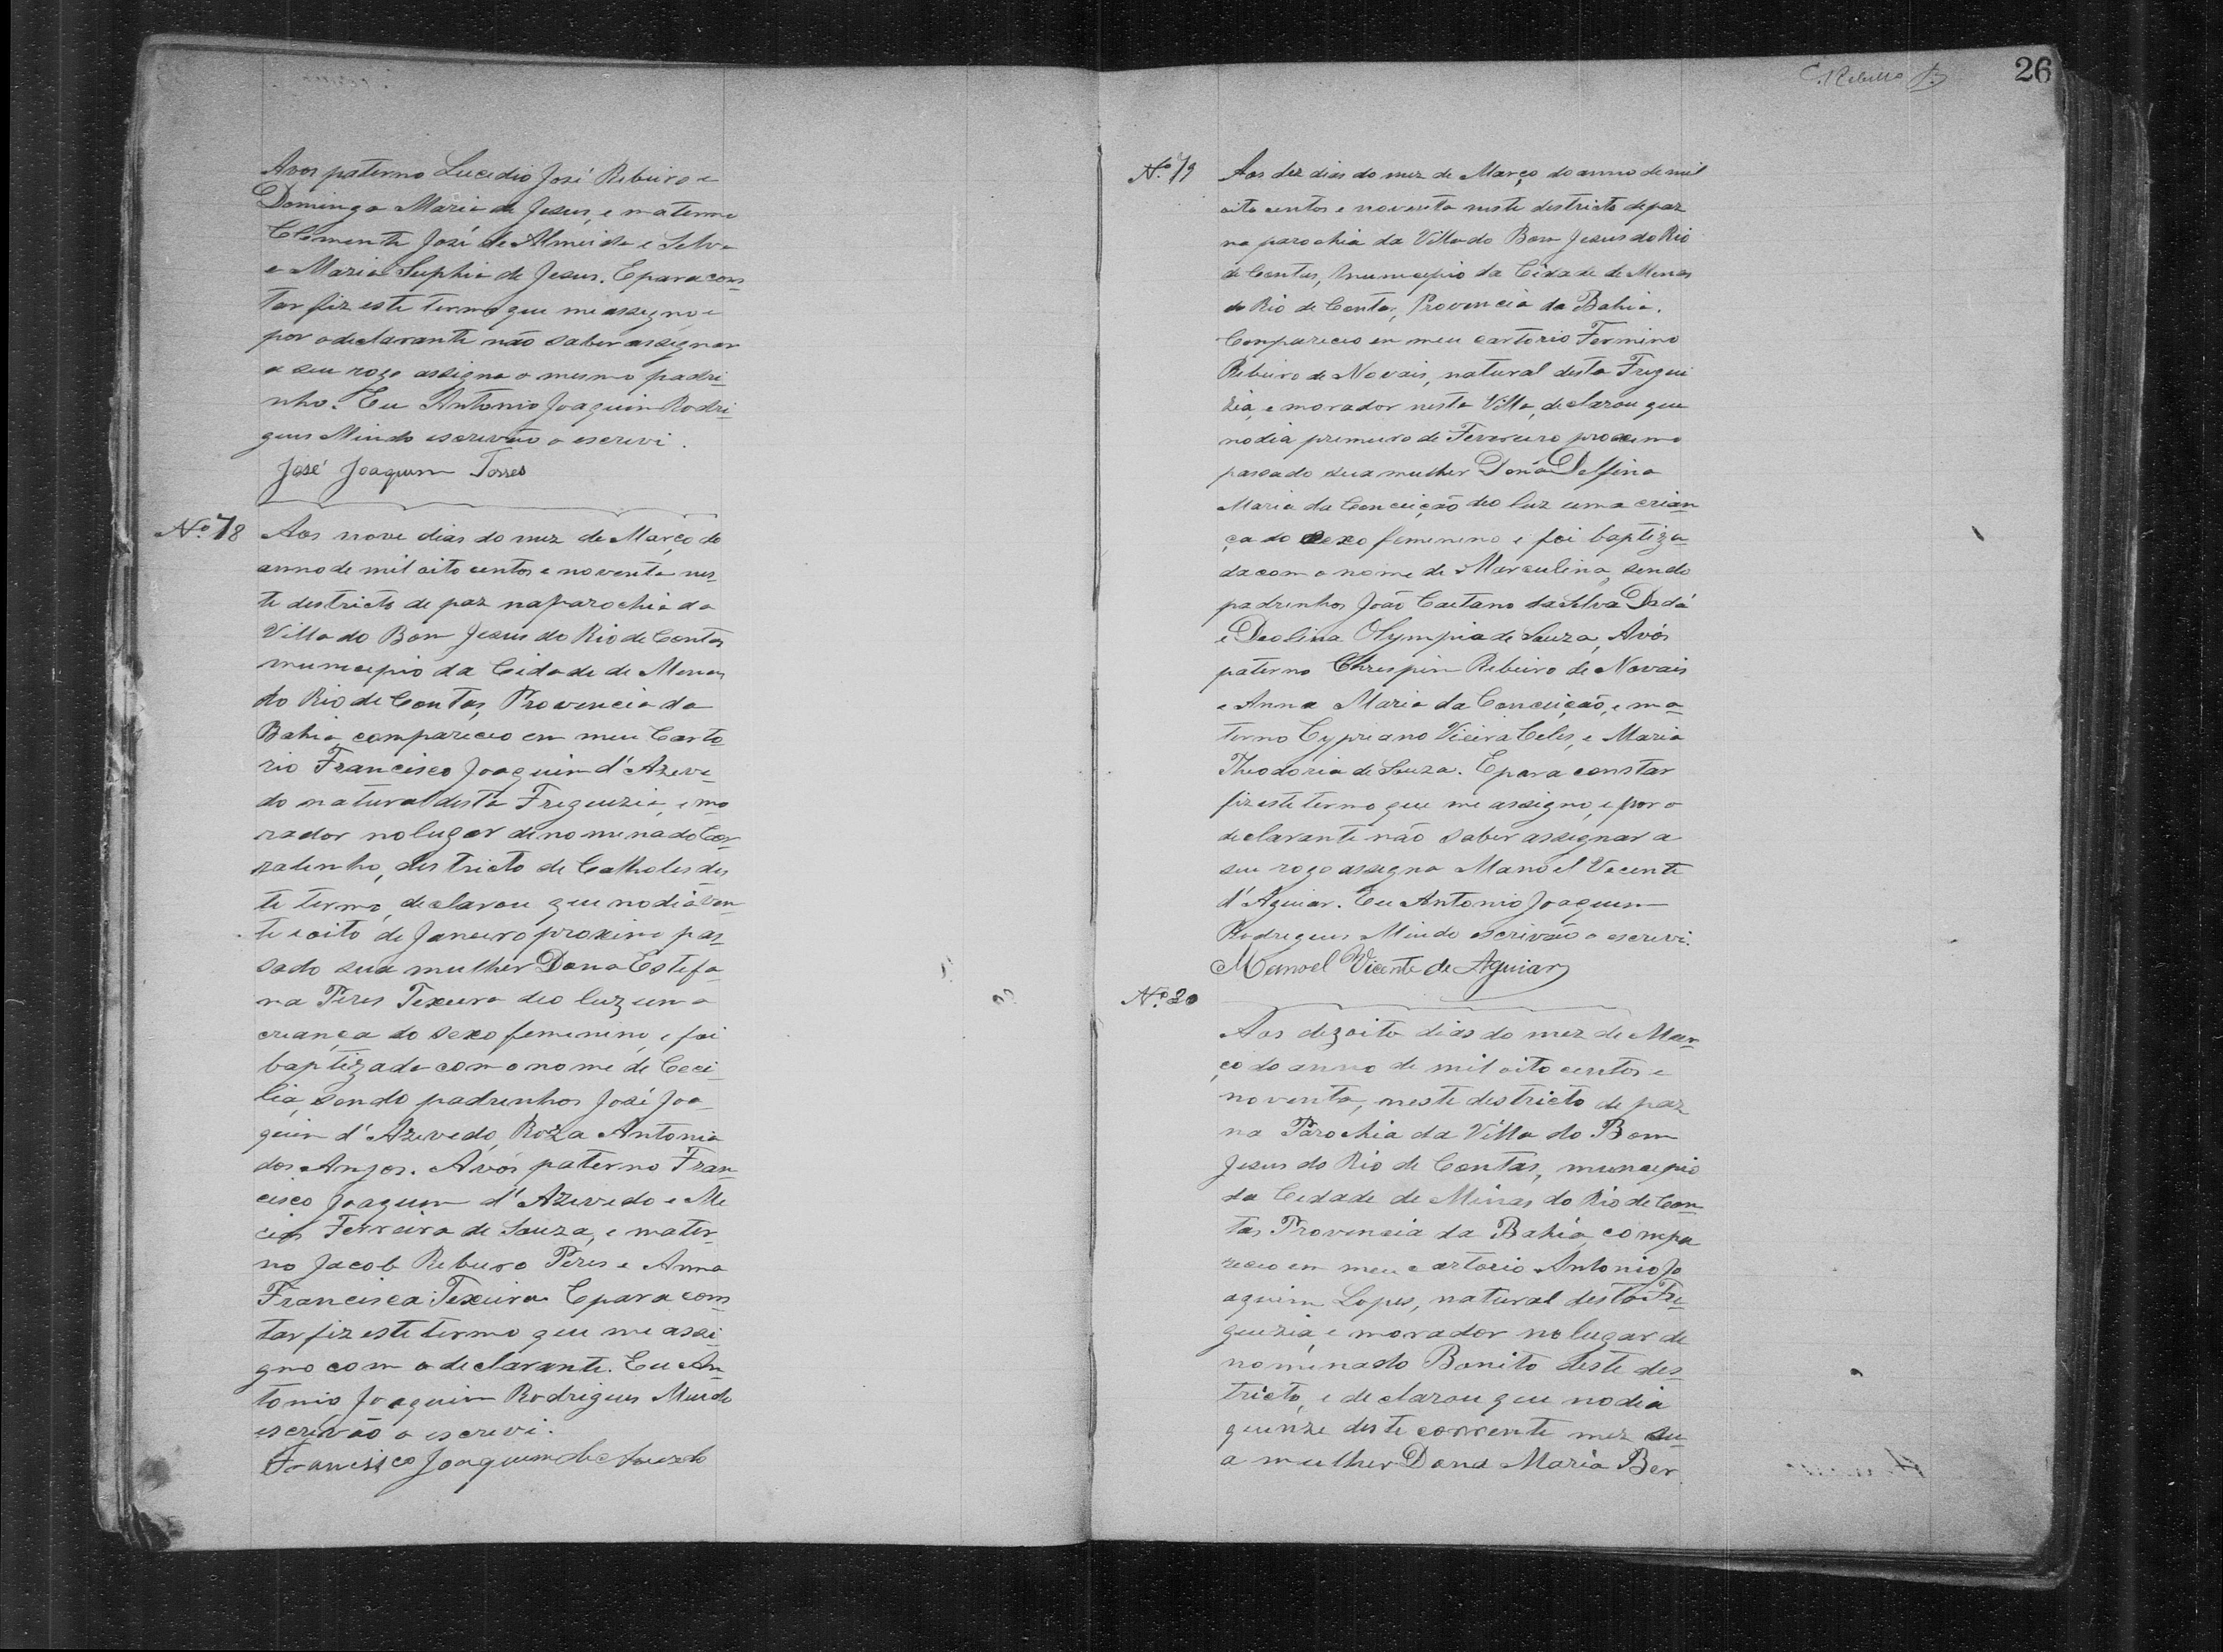 Avos paterno Lucedio José Ribeiro e
Dominga Maria de Jesus, e materno
Clemente José de Almeida e Selva
e Maria Suphia de Jesus. E para cons-
tar fiz este termo que me assigno e
por o declarante não saber assignar
a seu rogo assigna o mesmo padri-
nho. Eu Antonio Joaquim Rodri-
gues Mindo escrivão o escrevi.
José Joaquim Torres
No. 78 Aos nove dias do mez de Março do
anno de mil oito centos e noventa nes-
te destricto de paz na parochia da
Villa do Bom Jesus do Rio de Contas
municepio da Cidade de Menas
do Rio de Contas, Provencia da
Bahia compareceo em meu Carto-
rio Francisco Joaquim d'Azeve-
do natural desta Freguezia, e mo
rador no lugar denomenado Cor-
ralinho, destricto de Catholes des-
te termo, declarou que no dia ven-
te e oito de Janeiro proximo pas-
sado sua mulher Dona Estefa-
na Peres Texeira deo luz uma
criança do sexo femenino, e foi
baptizada com o nome de Ceci-
lia, sendo padrinhos José Joa-
quim d'Azevedo, Roza Antonia
dos Anjos. Avós paterno Fran-
cisco Joaquim d'Azevedo e
Ferreira de Souza, e mater-
no Jacob Ribeiro Peres e Anna
Francisca Texeira E para cons-
tar fiz este termo que me assi-
gno com o declarante. Eu An-
tonio Joaquim Rodrigues Mindo
escrivão o escrevi.
Francisco Joaquim de Azevedo
26
No. 79 Aos dez dias do mez de Março do anno de mil
oito centos e noventa neste destricto de paz
na parochia da Villa do Bom Jesus do Rio
de Contas, municepio da Cidade de Menas
do Rio de Contas, Provencia da Bahia.
Compareceo em meu cartorio Fermino
Ribeiro de Novais, natural desta Fregue
zia, e morador nesta Villa, declarou que
no dia premeiro de Fevereiro proximo
passado sua mulher Dona Delfina
Maria da Conceição deo luz uma crian-
ça do sexo femenino e foi baptiza-
da com o nome de Marculina, sendo
padrinhos João Caetano da Selva Dadá
e Deolina Olympia de Souza, Avós
paterno Chrespin Ribeiro de Novais
e Anna Maria da Conceição, e ma-
terno Cypriano Vieira Celes, e Maria
Theodoria de Souza. E para constar
fiz este termo que me assigno, e por o
declarante não saber assegnar a
seu rogo assegna Manoel Vecente
d'Aguiar. Eu Antonio Joaquim
Rodregues Mindo escrivão o escrevi.
Manoel Vicente de Aguiar
No. 80
Aos dezoito dias do mez de Mar-
ço do anno de mil oito centos e
noventa, neste destricto de paz
na Parochia da Villa do Bom
Jesus do Rio de Contas, municepio
da Cedade de Minas do Rio de Con-
tas Provencia da Bahia, compa
receo em meu cartorio Antonio Jo
aquim Lopes, natural desta Fre-
guezia, e morador no lugar de
nominado Bonito deste des-
tricto, e declarou que no dia
quinze deste corrente mez su-
a mulher Dona Maria Ber